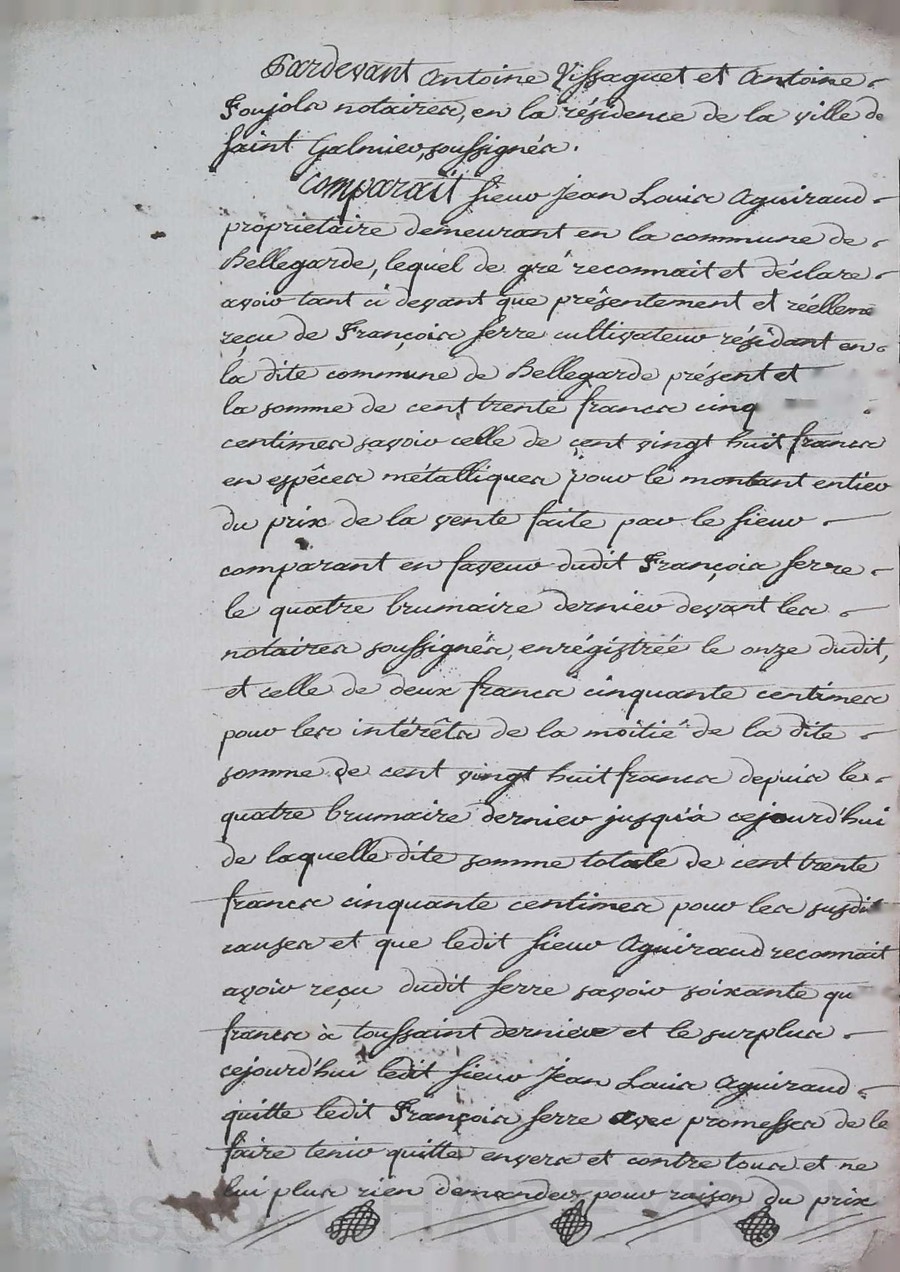 Pardevant Antoine Vissaguet et Antoine
Foujols notaires, en la résidence de la ville de
Saint Galmier, soussignés.
Comparait sieur Jean Louis Aguiraud
propriétaire demeurant en la commune de
Bellegarde, lequel de gré reconnait et déclare
avoir tant ci devant que présentement et réelleme
reçu de François Serre cultivateur résidant en
la dite commune de Bellegarde présent et
la somme de cent trente francs cinq
centimes savoir celle de cent vingt huit francs
en espêces métalliques pour le montant entier
du prix de la vente faite par le sieur
comparant en faveur dudit François Serre
le quatre brumaire dernier devant les
notaires soussignés, enrégistrée le onze dudit,
et celle de deux francs cinquante centimes
pour les intérêts de la moitié de la dite
somme de cent vingt huit francs depuis le
quatre brumaire dernier jusqu'à cejourd'hui
de laquelle dite somme totale de cent trente
francs cinquante centimes pour les susdit
causes et que ledit sieur Aguiraud reconnait
avoir reçu dudit Serre savoir soixante qu
francs à toussaint derniere et le surplus
cejourd'hui ledit sieur Jean Louis Aguiraud
quitte ledit François Serre avec promesse de le
faire tenir quitte envers et contre tous et ne
lui plus rien demander pour raison du prix
Pascal CHAREYRON